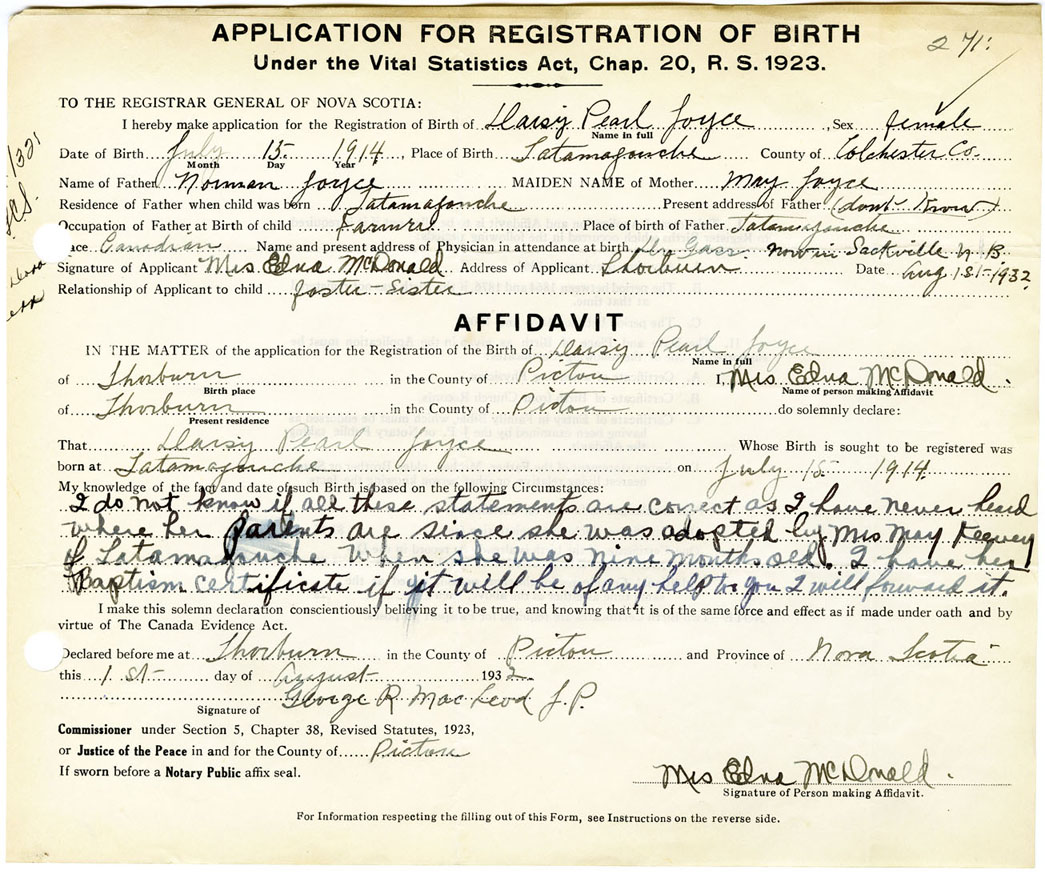 APPLICATION FOR REGISTRATION OF BIRTH
271:
Under the Vital Statistics Act, Chap. 20, R. S. 1923.
TO THE REGISTRAR GENERAL OF NOVA SCOTIA:
I hereby make application for the Registration of Birth of Daisy Pearl Joyce, Sex female
Name in full
Date of Birth July 15 1914, Place of Birth Tatamagouche County of Colchester Co.
Month Day Year
Name of Father Norman Joyce MAIDEN NAME of Mother May Joyce
Residence of Father when child was born Tatamagouche Present address of Father (dont Know)
Occupation of Father at Birth of child Farmer Place of birth of Father Tatamagouche
ace Canadian Name and present address of Physician in attendance at birth Dr Gass now in Sackville N.B.
Signature of Applicant Mrs Edna McDonald Address of Applicant Thorburn Date Aug 1st 1932
Relationship of Applicant to child foster-Sister
AFFIDAVIT
IN THE MATTER of the application for the Registration of the Birth of Daisy Pearl Joyce
Name in full
of Thorburn in the County of Pictou I, Mrs Edna McDonald.
Birth place Name of person making Affidavit
of Thorburn in the County of Pictou do solemnly declare:
Present residence
That Daisy Pearl Joyce Whose Birth is sought to be registered was
born at Tatamagouche on July 15 1914
My knowledge of the fact and date of such Birth is based on the following Circumstances:
I do not know if all these statements are correct as I have never heard
where her parents are since she was adopted by Mrs May
of Tatamagouche when she was nine months old. I have her
Baptism certificate if it will be of any help to you I will forward it.
I make this solemn declaration conscientiously believing it to be true, and knowing that it is of the same force and effect as if made under oath and by
virtue of The Canada Evidence Act.
Declared before me at Thorburn in the County of Pictou and Province of Nova Scotia
this 1st day of August 1932
George R MacLeod J.P.
Signature of
Commissioner under Section 5, Chapter 38, Revised Statutes, 1923,
or Justice of the Peace in and for the County of Pictou
If sworn before a Notary Public affix seal.
Mrs Edna McDonald.
Signature of Person making Affidavit.
For Information respecting the filling out of this Form, see Instructions on the reverse side.